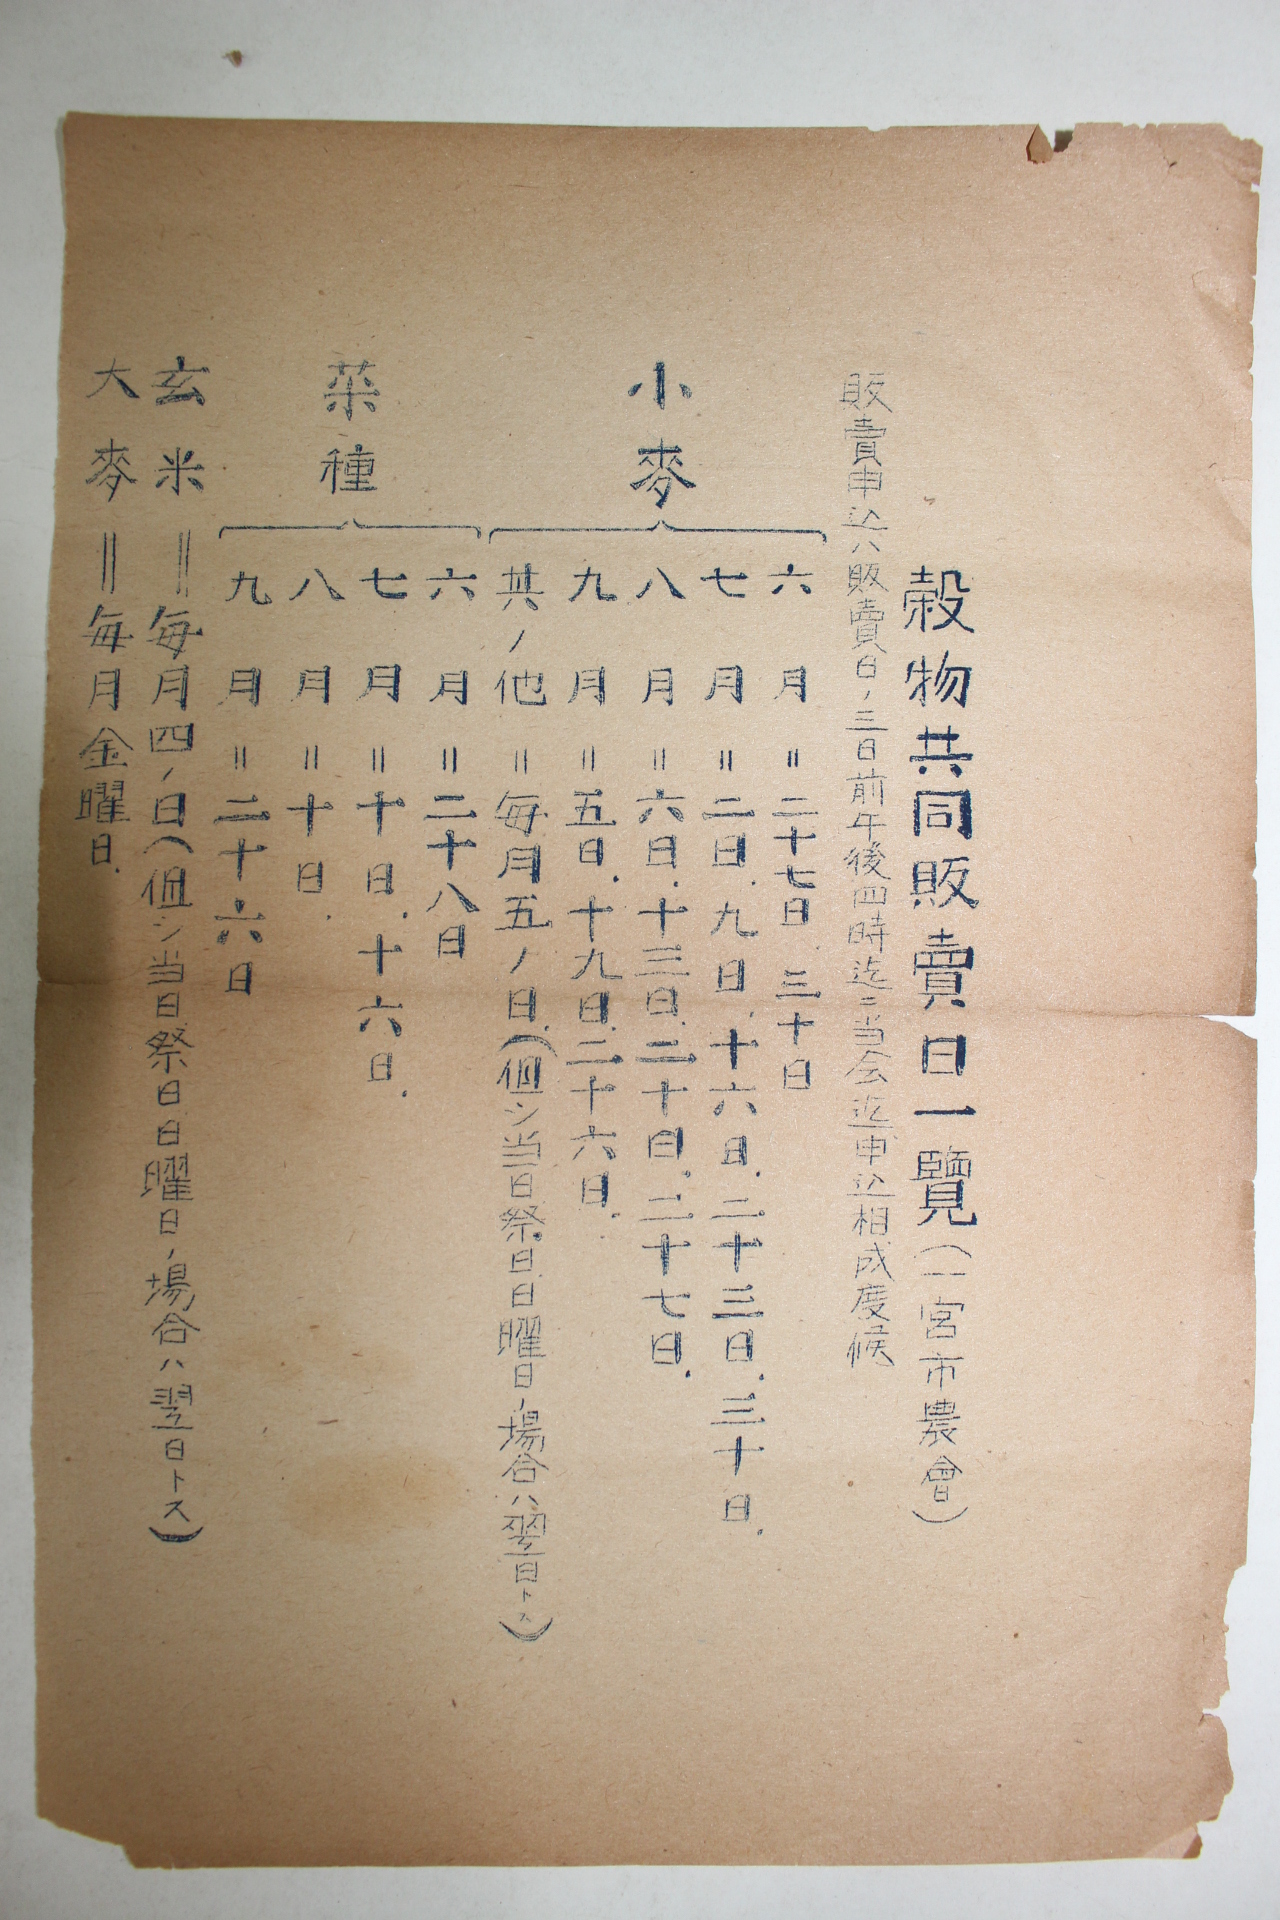 穀物共同販賣日一覽(一宮市農會)
販賣申込ハ販賣日ノ三日前午後四時迄ニ当会迄申込相成度候
小麥
六月＝二十七日.三十日
七月＝二日.九日.十六日.二十三日.三十日.
八月＝六日.十三日.二十日.二十七日.
九月＝五日.十九日.二十六日.
其ノ他＝毎月五ノ日(但シ当日祭日.日曜日ノ場合ハ翌日トス)
菜種
六月＝二十八日
七月＝十日.十六日.
八月＝十日.
九月＝二十六日
玄米＝毎月四ノ日(但シ当日祭日日曜日ノ場合ハ翌日トス)
大麥＝毎月金曜日.